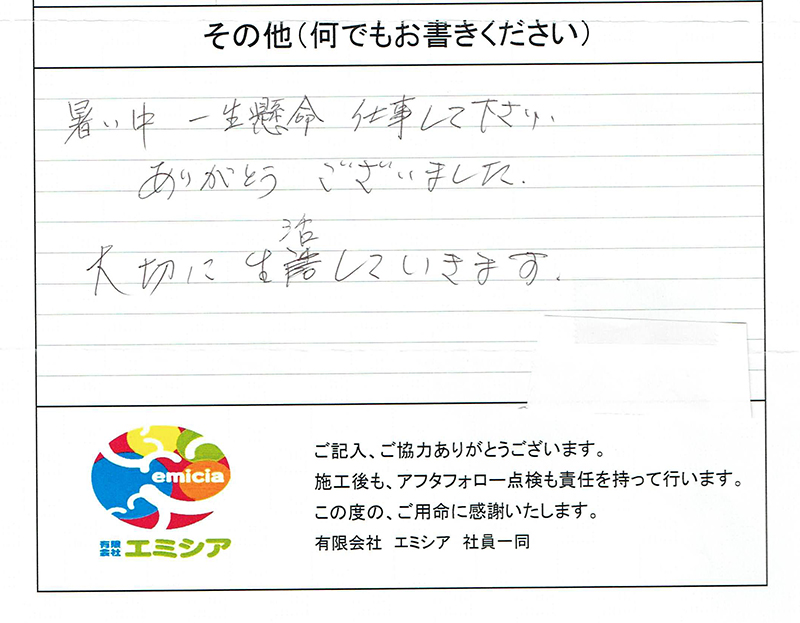 その他(何でもお書きください)
暑い中 一生懸命 仕事して下さり、
ありがとう ございました.
活
大切に 生 していきます.
emicia
有限会社 エミシア
ご記入、ご協力ありがとうございます。
施工後も、アフタフォロー点検も責任を持って行います。
この度の、ご用命に感謝いたします。
有限会社 エミシア 社員一同